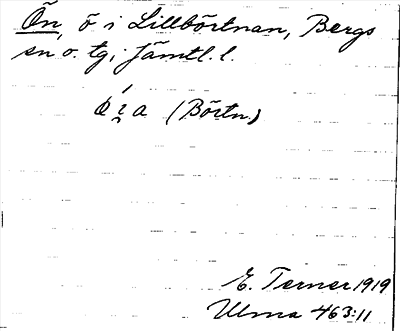 Ön, ö i Lillbörtnan, Bergs
sn o. tg, Jämtl. l.
(Börtn.)
E. Terner 1919
Ulma 463:11